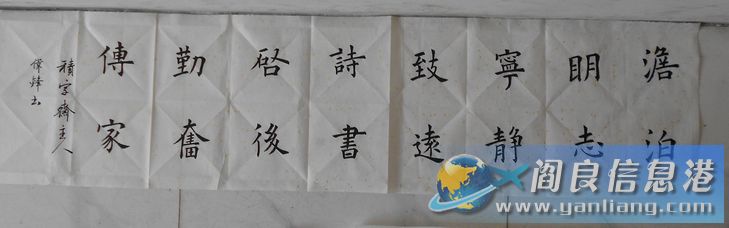 澹泊
明志
寧静
致遠
詩書
啓後
勤奮
傳家
積字齋主人
偉鋒书
阎良信息港
www.yanliang.com